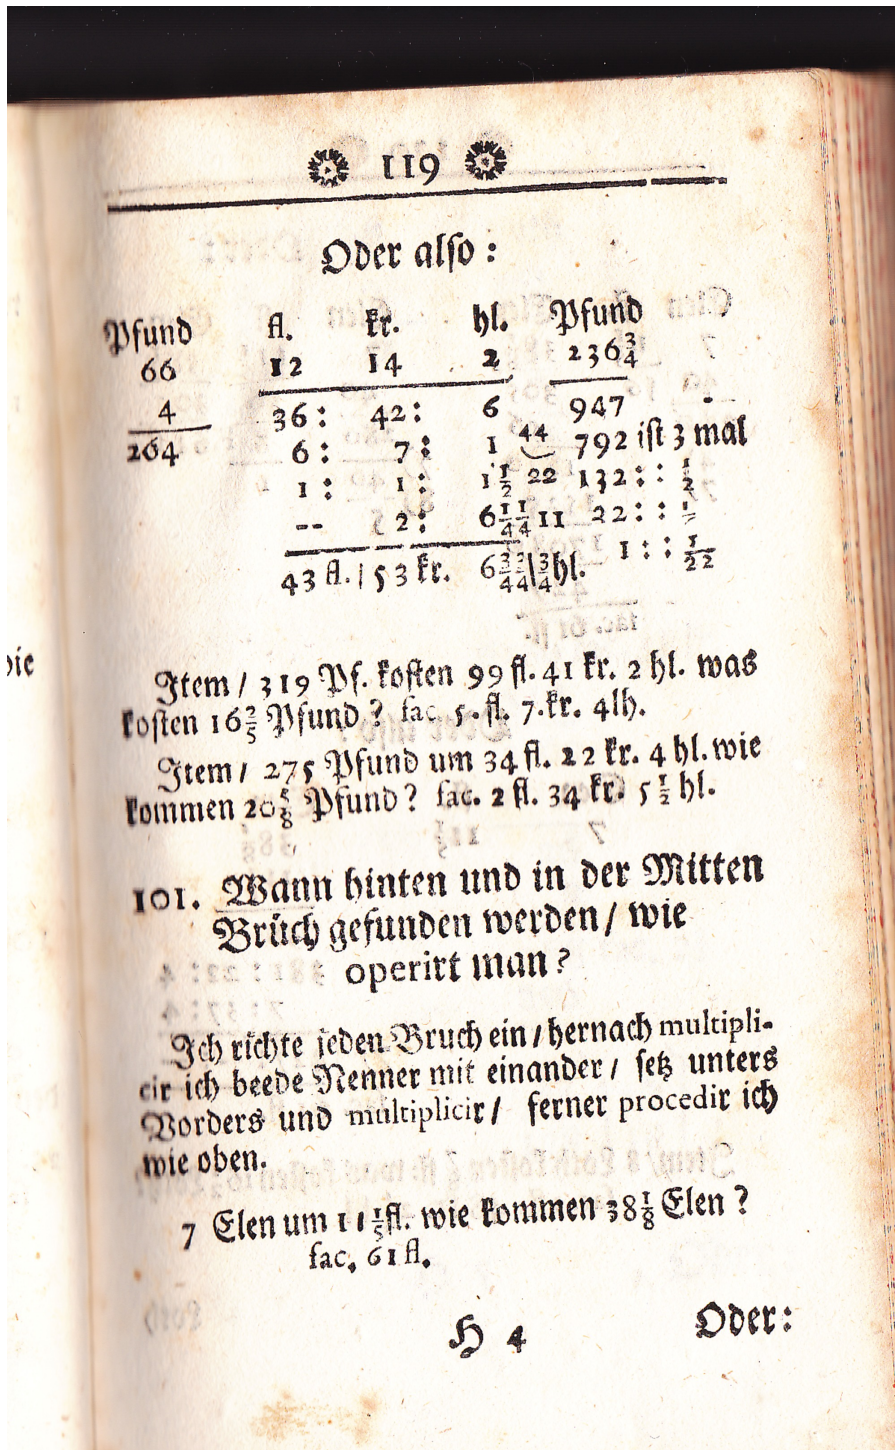 119
Oder also:
Pfund fl. kr. hl. Pfund
66 12 14 2 236 3/4
4 36: 42: 6 947
264 6: 7: 1 44 792 ist 3 mal
1: 1: 1 1/2 22 132:: 1/2
-- 2: 6 1/4 1/4 11 22::
43 fl. / 53 kr. 6 33/44 \ 3/4 hl. 1:: 1/22
die
Item / 319 Pf. kosten 99 fl. 41 kr. 2 hl. was
kosten 16 2/5 Pfund? fac. 5. fl. 7. kr. 4 lh.
Item / 275 Pfund um 34 fl. 22 kr. 4 hl. wie
kommen 20 5/8 Pfund? fac. 2 fl. 34 kr. 5 1/2 hl.
101. Wann hinten und in der Mitten
Brüch gefunden werden / wie
operirt man?
Ich richte jeden Bruch ein / hernach multipli-
cir ich beede Nenner mit einander / setz unters
Vorders und multiplicir / ferner procedir ich
wie oben.
7 Elen um 11 1/5 fl. wie kommen 38 1/8 Elen?
fac. 61 fl.
H 4 Oder: